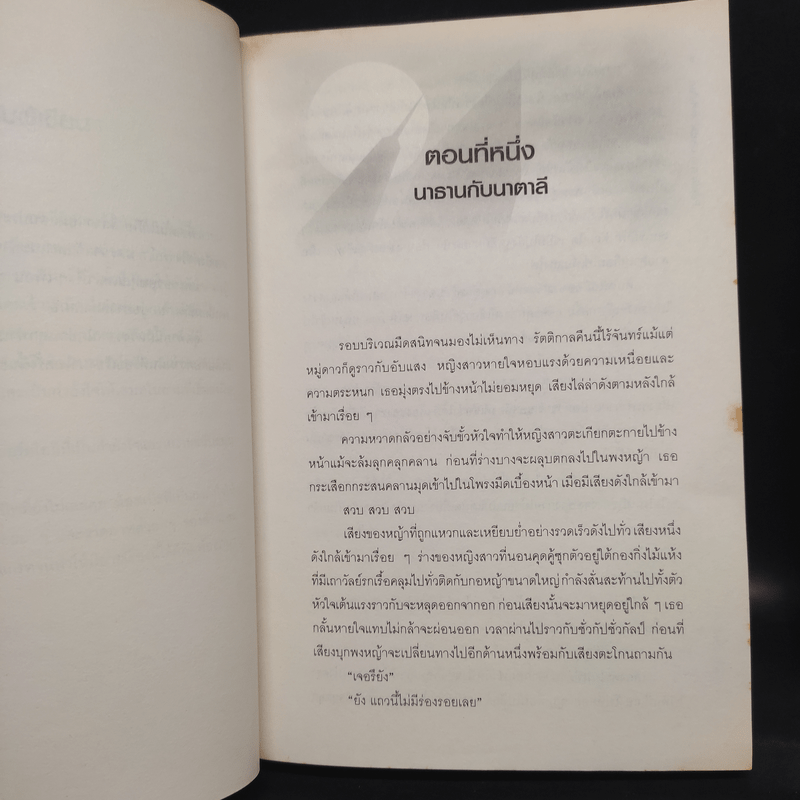 ตอนที่หนึ่ง
นาธานกับนาตาลี
รอบบริเวณมืดสนิทจนมองไม่เห็นทาง รัตติกาลคืนนี้ไร้จันทร์แม้แต่
หมู่ดาวก็ดูราวกับอับแสง หญิงสาวหายใจหอบแรงด้วยความเหนื่อยและ
ความตระหนก เธอมุ่งตรงไปข้างหน้าไม่ยอมหยุด เสียงไล่ล่าดังตามหลังใกล้
เข้ามาเรื่อย ๆ
ความหวาดกลัวอย่างจับขั้วหัวใจทำให้หญิงสาวตะเกียกตะกายไปข้าง
หน้าแม้จะล้มลุกคลุกคลาน ก่อนที่ร่างบางจะผลุบตกลงไปในพงหญ้า เธอ
กระเสือกกระสนคลานมุดเข้าไปในโพรงมืดเบื้องหน้า เมื่อมีเสียงดังใกล้เข้ามา
สวบ สวบ สวบ
เสียงของหญ้าที่ถูกแหวกและเหยียบย่ำอย่างรวดเร็วดังไปทั่ว เสียงหนึ่ง
ดังใกล้เข้ามาเรื่อย ๆ ร่างของหญิงสาวที่นอนคุดคู้ซุกตัวอยู่ใต้กองกิ่งไม้แห้ง
ที่มีเถาวัลย์รกเรื้อคลุมไปทั่วติดกับกอหญ้าขนาดใหญ่ กำลังสั่นสะท้านไปทั้งตัว
หัวใจเต้นแรงราวกับจะหลุดออกจากอก ก่อนเสียงนั้นจะมาหยุดอยู่ใกล้ ๆ เธอ
กลั้นหายใจแทบไม่กล้าจะผ่อนออก เวลาผ่านไปราวกับชั่วกัปชั่วกัลป์ ก่อนที่
เสียงบุกพงหญ้าจะเปลี่ยนทางไปอีกด้านหนึ่งพร้อมกับเสียงตะโกนถามกัน
“เจอรึยัง”
“ยัง แถวนี้ไม่มีร่องรอยเลย”